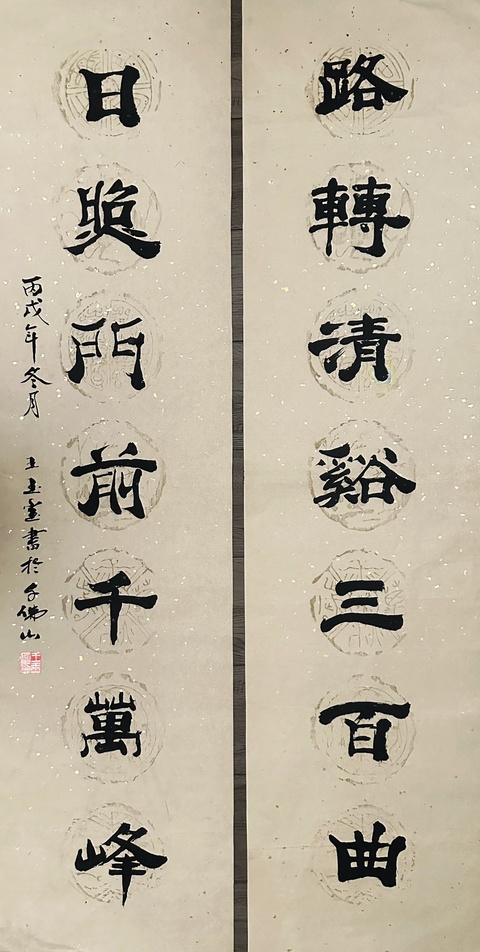 路轉清谿三百曲
日照門前千萬峰
丙戌年冬月
王玉憲書於千佛山